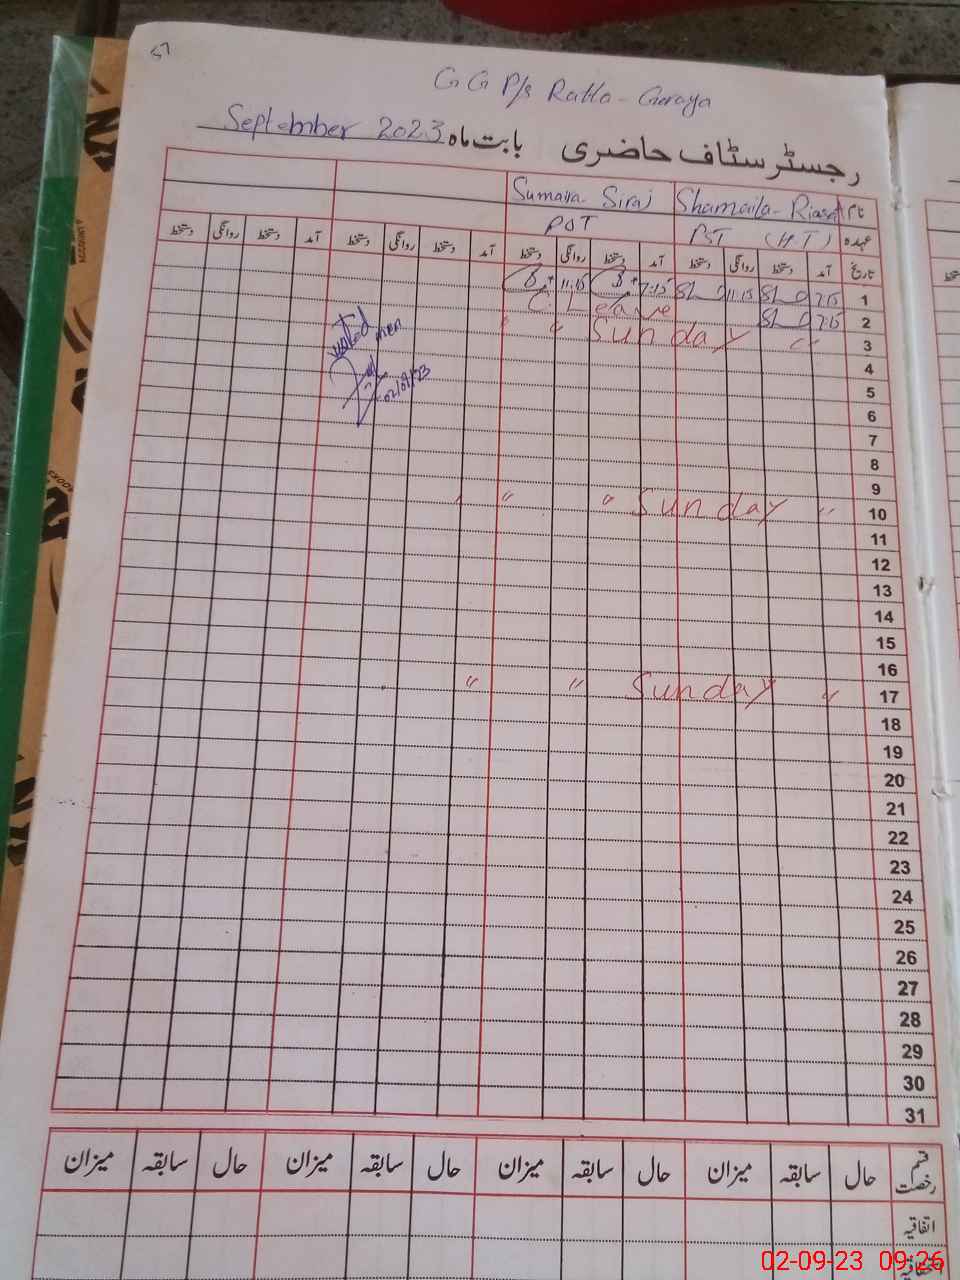 57
G G P/s Ratta - Goraya
رجسٹر سٹاف حاضری بابت ماہ September 2023
نام Shamaila - Riasat Sumaira - Siraj
عہدہ PST (HT) PST
تاریخ آمد دستخط روانگی دستخط آمد دستخط روانگی دستخط آمد دستخط روانگی دستخط آمد دستخط روانگی دستخط
1 7:15 11:15 7:15 11:15
2 7:15 C. Leave
3 " Sunday " "
4
5
6
7
8
9
10 " Sunday " "
11
12
13
14
15
16
17 " Sunday " "
18
19
20
21
22
23
24
25
26
27
28
29
30
31
visited
02/09/23
قسم رخصت حال سابقہ میزان حال سابقہ میزان حال سابقہ میزان حال سابقہ میزان
اتفاقیہ
02-09-23 09:26